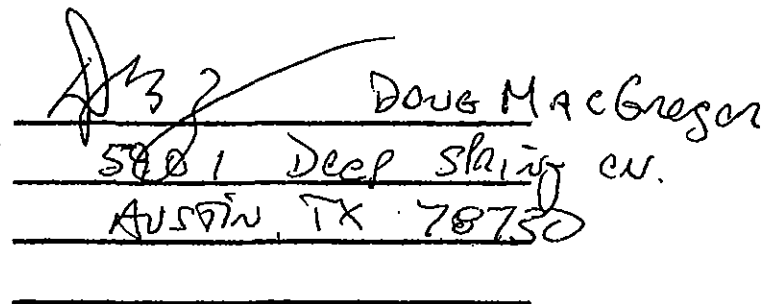 Doug MacGregor
Deep Spring cv.
Austin, TX 78730